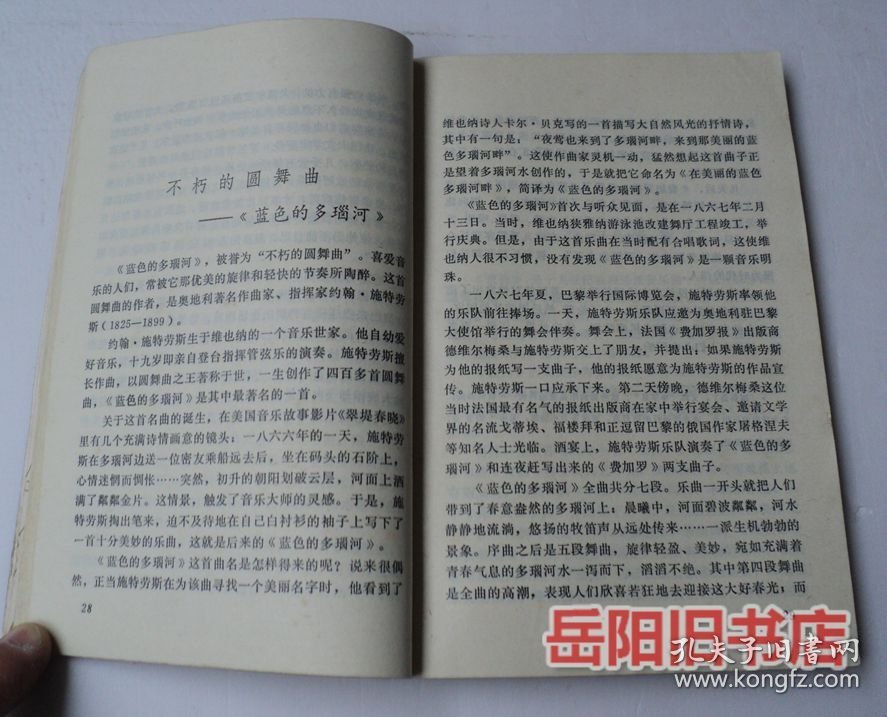 不朽的圆舞曲
——《蓝色的多瑙河》
《蓝色的多瑙河》，被誉为“不朽的圆舞曲”。喜爱音
乐的人们，常被它那优美的旋律和轻快的节奏所陶醉。这首
圆舞曲的作者，是奥地利著名作曲家、指挥家约翰·施特劳
斯（1825—1899）。
约翰·施特劳斯生于维也纳的一个音乐世家。他自幼爱
好音乐，十九岁即亲自登台指挥管弦乐的演奏。施特劳斯擅
长作曲，以圆舞曲之王著称于世，一生创作了四百多首圆舞
曲，《蓝色的多瑙河》是其中最著名的一首。
关于这首名曲的诞生，在美国音乐故事影片《翠堤春晓》
里有几个充满诗情画意的镜头：一八六六年的一天，施特劳
斯在多瑙河边送一位密友乘船远去后，坐在码头的石阶上，
心情迷惘而惆怅……突然，初升的朝阳划破云层，河面上洒
满了粼粼金片。这情景，触发了音乐大师的灵感。于是，施
特劳斯掏出笔来，迫不及待地在自己白衬衫的袖子上写下了
一首十分美妙的乐曲，这就是后来的《蓝色的多瑙河》。
《蓝色的多瑙河》这首曲名是怎样得来的呢？说来很偶
然，正当施特劳斯在为该曲寻找一个美丽名字时，他看到了
28
维也纳诗人卡尔·贝克写的一首描写大自然风光的抒情诗，
其中有一句是：“夜莺也来到了多瑙河畔，来到那美丽的蓝
色多瑙河畔”。这使作曲家灵机一动，猛然想起这首曲子正
是望着多瑙河水创作的，于是就把它命名为《在美丽的蓝色
多瑙河畔》，简译为《蓝色的多瑙河》。
《蓝色的多瑙河》首次与听众见面，是在一八六七年二月
十三日。当时，维也纳狭雅纳游泳池改建舞厅工程竣工，举
行庆典。但是，由于这首乐曲在当时配有合唱歌词，这使维
也纳人很不习惯，没有发现《蓝色的多瑙河》是一颗音乐明
珠。
一八六七年夏，巴黎举行国际博览会，施特劳斯率领他
的乐队前往捧场。一天，施特劳斯乐队应邀为奥地利驻巴黎
大使馆举行的舞会伴奏。舞会上，法国《费加罗报》出版商
德维尔梅桑与施特劳斯交上了朋友，并提出：如果施特劳斯
为他的报纸写一支曲子，他的报纸愿意为施特劳斯的作品宣
传。施特劳斯一口应承下来。第二天傍晚，德维尔梅桑这位
当时法国最有名气的报纸出版商在家中举行宴会、邀请文学
界的名流戈蒂埃、福楼拜和正逗留巴黎的俄国作家屠格涅夫
等知名人士光临。酒宴上，施特劳斯乐队演奏了《蓝色的多
瑙河》和连夜赶写出来的《费加罗》两支曲子。
《蓝色的多瑙河》全曲共分七段。乐曲一开头就把人们
带到了春意盎然的多瑙河上：晨曦中，河面碧波粼粼，河水
静静地流淌，悠扬的牧笛声从远处传来……一派生机勃勃的
景象。序曲之后是五段舞曲，旋律轻盈、美妙，宛如充满着
青春气息的多瑙河水一泻而下，滔滔不绝。其中第四段舞曲
是全曲的高潮，表现人们欣喜若狂地去迎接这大好春光；而
岳阳旧书店
孔夫子旧书网
www.kongfz.com